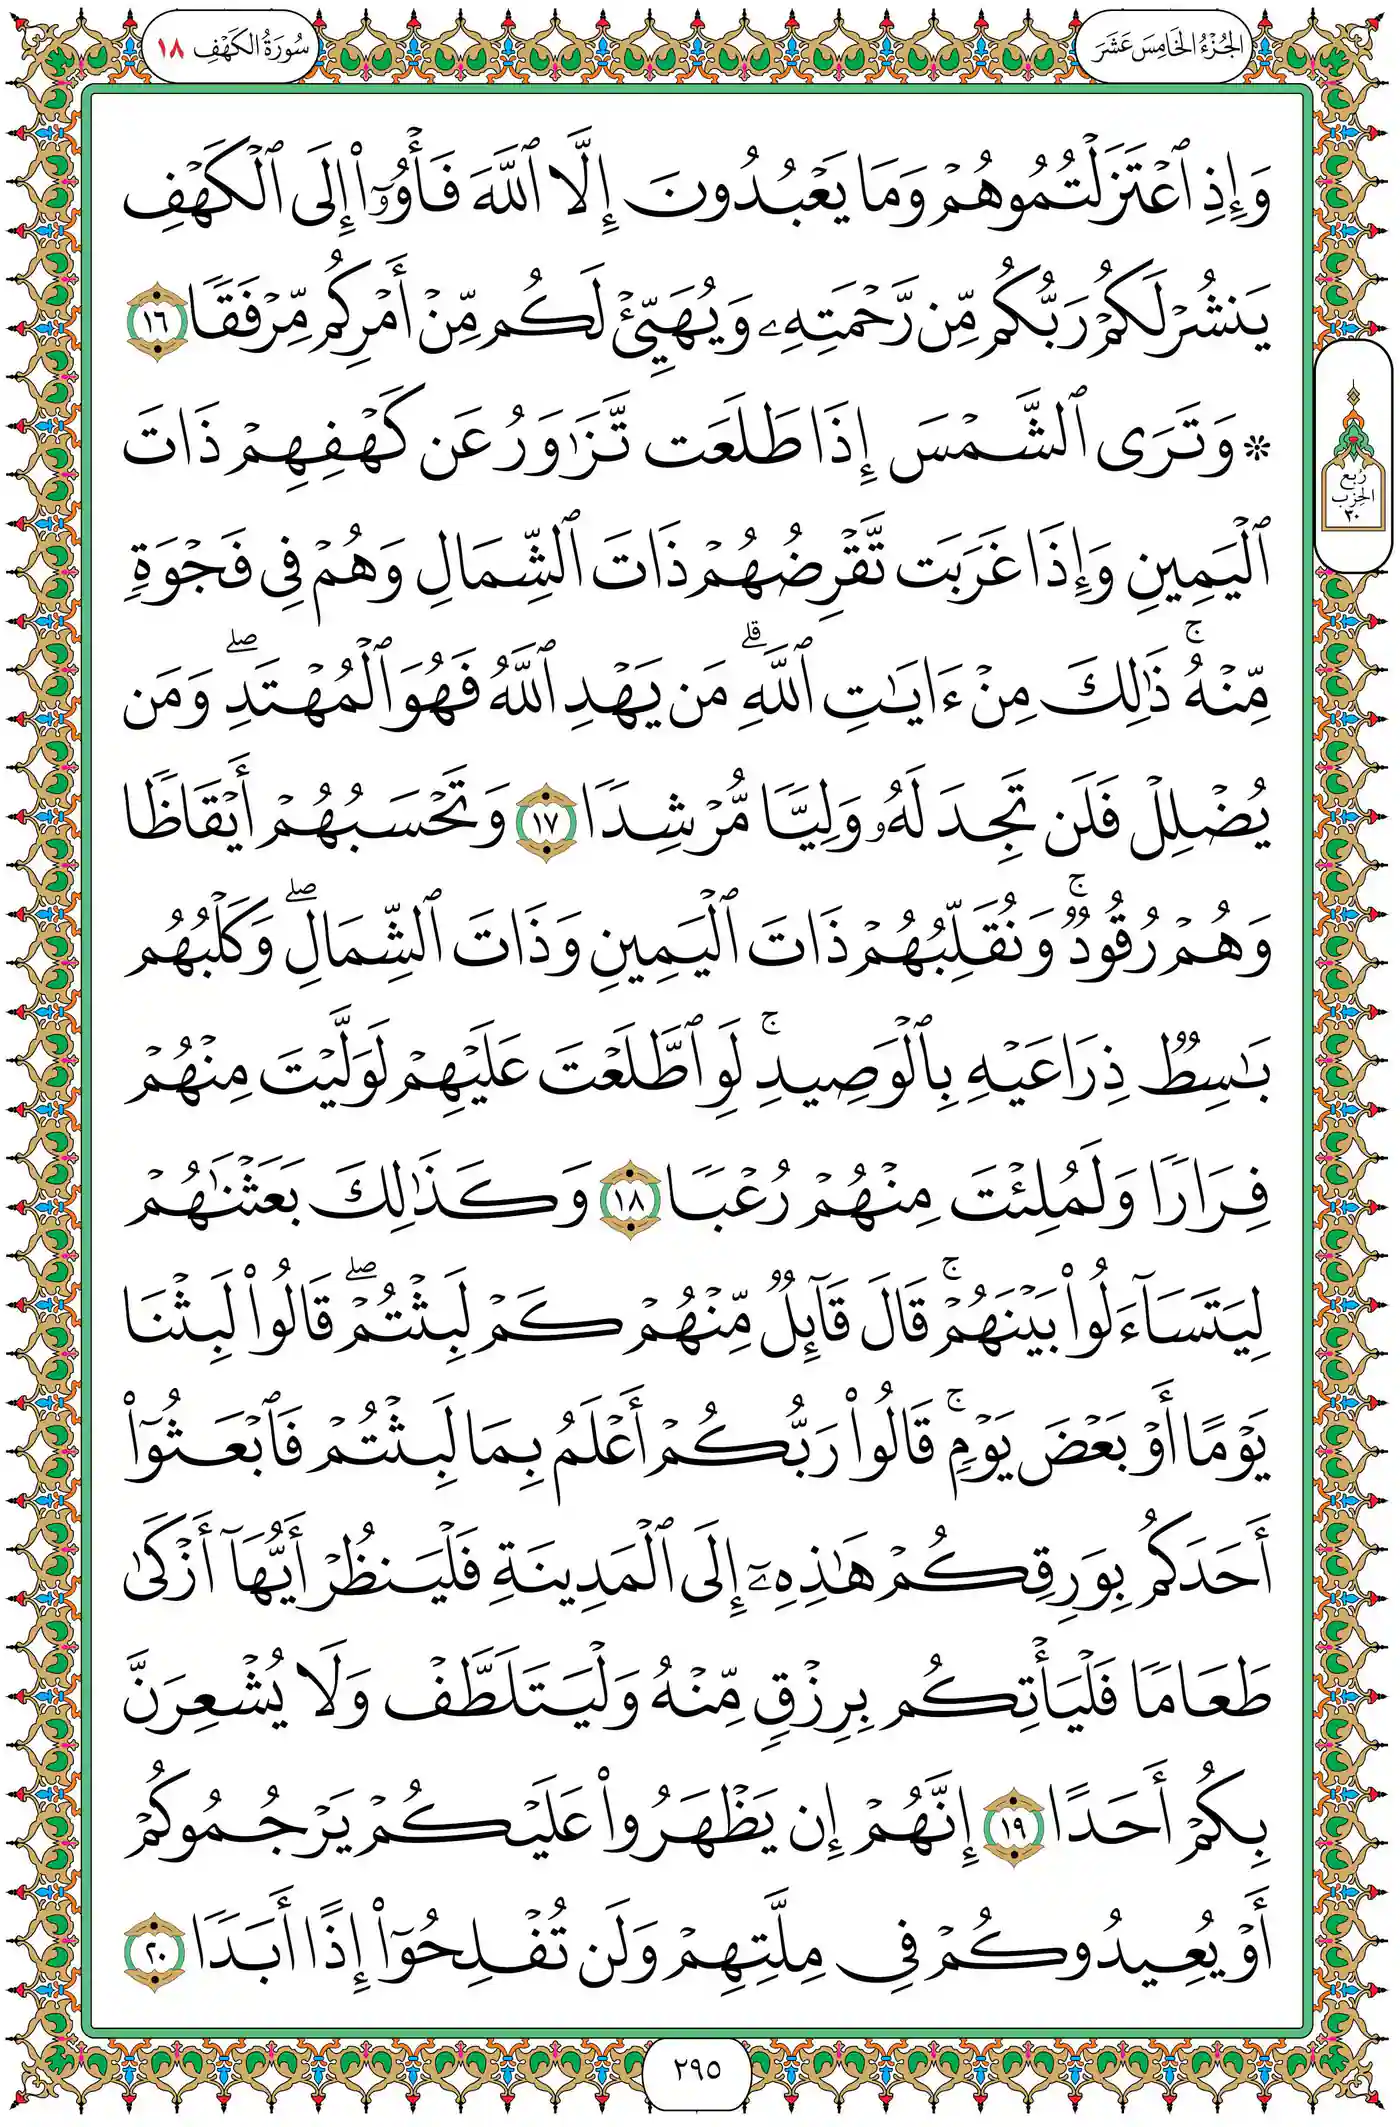 الجُزْءُ الخَامِسَ عَشَرَ
سُورَةُ الكَهْفِ ١٨
وَإِذِ ٱعْتَزَلْتُمُوهُمْ وَمَا يَعْبُدُونَ إِلَّا ٱللَّهَ فَأْوُۥٓا۟ إِلَى ٱلْكَهْفِ
يَنشُرْ لَكُمْ رَبُّكُم مِّن رَّحْمَتِهِۦ وَيُهَيِّئْ لَكُم مِّنْ أَمْرِكُم مِّرْفَقًا ١٦
۞ وَتَرَى ٱلشَّمْسَ إِذَا طَلَعَت تَّزَٰوَرُ عَن كَهْفِهِمْ ذَاتَ
رُبع الحِزب ٣٠
ٱلْيَمِينِ وَإِذَا غَرَبَت تَّقْرِضُهُمْ ذَاتَ ٱلشِّمَالِ وَهُمْ فِى فَجْوَةٍ
مِّنْهُ ۚ ذَٰلِكَ مِنْ ءَايَٰتِ ٱللَّهِ ۗ مَن يَهْدِ ٱللَّهُ فَهُوَ ٱلْمُهْتَدِ ۖ وَمَن
يُضْلِلْ فَلَن تَجِدَ لَهُۥ وَلِيًّا مُّرْشِدًا ١٧ وَتَحْسَبُهُمْ أَيْقَاظًا
وَهُمْ رُقُودٌ ۚ وَنُقَلِّبُهُمْ ذَاتَ ٱلْيَمِينِ وَذَاتَ ٱلشِّمَالِ ۖ وَكَلْبُهُم
بَٰسِطٌ ذِرَاعَيْهِ بِٱلْوَصِيدِ ۚ لَوِ ٱطَّلَعْتَ عَلَيْهِمْ لَوَلَّيْتَ مِنْهُمْ
فِرَارًا وَلَمُلِئْتَ مِنْهُمْ رُعْبًا ١٨ وَكَذَٰلِكَ بَعَثْنَٰهُمْ
لِيَتَسَآءَلُوا۟ بَيْنَهُمْ ۚ قَالَ قَآئِلٌ مِّنْهُمْ كَمْ لَبِثْتُمْ ۖ قَالُوا۟ لَبِثْنَا
يَوْمًا أَوْ بَعْضَ يَوْمٍ ۚ قَالُوا۟ رَبُّكُمْ أَعْلَمُ بِمَا لَبِثْتُمْ فَٱبْعَثُوٓا۟
أَحَدَكُم بِوَرِقِكُمْ هَٰذِهِۦٓ إِلَى ٱلْمَدِينَةِ فَلْيَنظُرْ أَيُّهَآ أَزْكَىٰ
طَعَامًا فَلْيَأْتِكُم بِرِزْقٍ مِّنْهُ وَلْيَتَلَطَّفْ وَلَا يُشْعِرَنَّ
بِكُمْ أَحَدًا ١٩ إِنَّهُمْ إِن يَظْهَرُوا۟ عَلَيْكُمْ يَرْجُمُوكُمْ
أَوْ يُعِيدُوكُمْ فِى مِلَّتِهِمْ وَلَن تُفْلِحُوٓا۟ إِذًا أَبَدًا ٢٠
٢٩٥